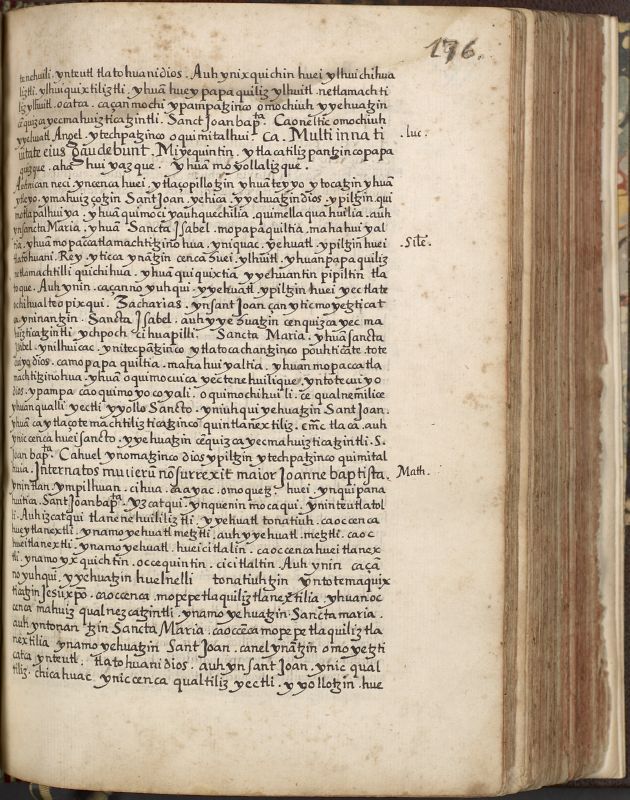 176.
tenehuili . ynteutl tlatohuani dios . Auh ynixquichin huei ylhuichihua
liztli . ylhuiquixtiliztli . yhuā huey papaquiliz ylhuitl . netlamachti
liz ylhuitl . ocatca . caçan mochi ypampatzinco omochiuh yyehuatzin
cēquizcayecmahuizticatzintli . Sanct Joan bapta. Caoneltic omochiuh
yyehuatl Angel . ytechpatzinco oquimitalhui . ca . Multi in nati
uitate eius gaudebunt . Miyequintin . ytlacatilizpantzinco papa
quizque . aha hui yazque . yhuā moyollalizque . .luc.
Auh nican neci yncenca huei . ytlaçopillotzin yhuā teyyo ytocatzin yhuā
ytleyo . ymahuizçotzin Sant Joan . yehica . yyehuatzin dios . ypiltzin . qui
motlapalhui ya . yhuā quimoci yauhquechilia . quimellaquahuilia . auh
yn sancta Maria . yhuā Sancta Isabel . mopapaquiltia . mahahui yal
tia . yhuā mopaccatlamachtitzinohua . yniquac . yehuatl . ypiltzin huei .Silē.
tlatohuani . Rey . yticaynātzin cencā huei . ylhuitl . yhuan papaquiliz
netlamachtilli quichihua . yhuā quiquixtia yyehuantin pipiltin tla
toque . Auh ynin . caçanno yuhqui . yyehuatl . ypiltzin huei yectlate
ochihualteopixqui . Zacharias . yn sant Joan çan yticmoyetzticat
ca yninantzin . Sancta Isabel . auh yye huatzin cenquizca yecma
huizticatzintli ychpoch cihuapilli . Sancta Maria . yhuā sancta
Isabel . ynilhuicac . ynitecpātzinco ytlatocachantzinco pouhticāte . tote
cuiyo dios . camopapaquiltia . mahahui yaltia . yhuan mopaccatla
machtitzinohua . yhuā oquimocuica yectenehuilique . yntotecuiyo
dios . ypampa caoquimoyocoyali . oquimochihuili . cē qualnemilice
yhuan qualli yectli yyollo Sancto . yniuhqui yehuatzin Sant Joan .
yhuā caytlaçotemachtiliztica tzinco quintlanextiliz . cmēc tlaca . auh
ynic cenca huei sancto . yyehuatzin cēquizcayecmahuizticatzintli . S.
Joan bapta. Cahuel ynomatzinco dios ypiltzin ytechpatzinco quimital
huia . Internatos mulierū nō surrexit maior Joanne baptista . Math.
ynintlan . ympilhuan . cihua . caayac . omoquetz huei . ynquipana
huitica . Sant Joan bapta. yzcatqui . ynquenin mocaqui . yninteutlatol
li . Auh izcatqui tlanenehuililiztli . yyehuatl tonatiuh . caoccenca
huey tlanextli . ynamo yehuatl metztli . auh yyehuatl . metztli . caoc
huei tlanextli . ynamo yehuatl . huei citlalin . caoccenca huei tlanex
tli . ynamo yxquichtin . occequintin . cicitlaltin . Auh ynin caçā
no yuhqui . yyehuatzin huelnelli tonatiuhtzin yntotemaquix
ticatzin Jesu xpō . caoccenca . mopepetlaquiliztlanextilia . yhuan oc
cenca mahuiz qualnezcatzintli . ynamo yehuatzin . Sancta maria .
auh yntonantzin Sancta Maria . caoccēca mopepetlaquiliztla
nextilia ynamo yehuatzin Sant Joan . canel ynātzin omoyetzti
catca ynteutl . tlatohuani dios . auh yn sant Joan . ynic qual
tiliz . chicahuac . ynic cenca qualtiliz yectli . yyollotzin . hue